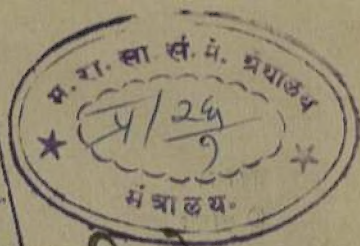 म. रा. सा. सं. मं. ग्रंथालय
प्र/२५
१
मंत्रालय.